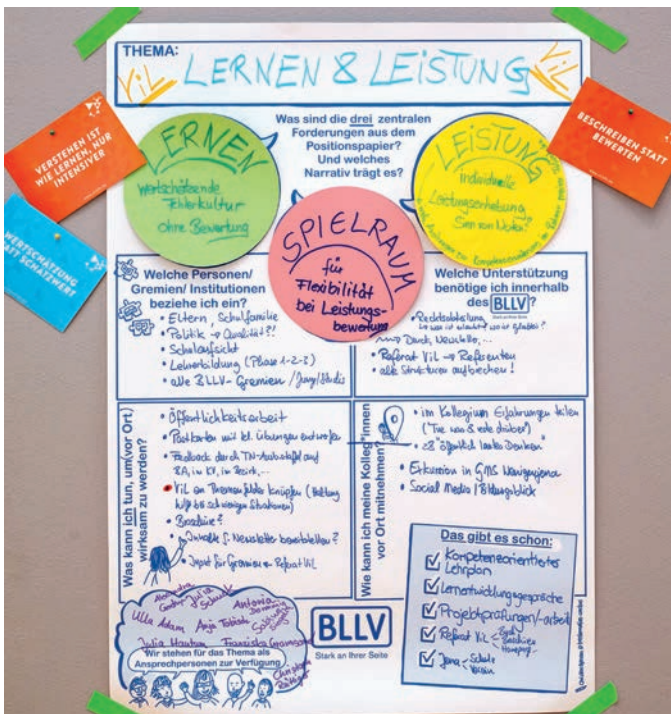 THEMA:
ViL
LERNEN & LEISTUNG
ViL
VERSTEHEN IST
WIE LERNEN, NUR
INTENSIVER
WERTSCHÄTZUNG
STATT SCHATZWERT
BESCHREIBEN STATT
BEWERTEN
Was sind die drei zentralen
Forderungen aus dem
Positionspapier?
Und welches
Narrativ trägt es?
LERNEN
Wertschätzende
Fehlerkultur
ohne Bewertung
SPIELRAUM
für
Flexibilität
bei Leistungs-
bewertung
LEISTUNG
Individuelle
Leistungserhebung
Sinn von Noten?
Welche Personen/
Gremien/ Institutionen
beziehe ich ein?
• Eltern, Schulfamilie
• Politik → Qualität?!
• Schulaufsicht
• Lehrerbildung (Phase 1-2-3)
• alle BLLV-Gremien / Junge/Studis
Welche Unterstützung
benötige ich innerhalb
des BLLV?
Stark an Ihrer Seite
• Rechtsabteilung
Durch Newsletter,...
• Referat ViL → Referenten
• alle Strukturen aufbrechen!
Was kann ich tun, um (vor Ort)
wirksam zu werden?
• Öffentlichkeitsarbeit
• Postkarten mit kl. Übungen entwerfen
• Feedback durch TN
BA, im KV, im Bezirk,...
• ViL an Themenfelder knüpfen (Haltung
hilft bei schwierigen Situationen)
• Broschüre?
• Inhalte f. Newsletter bereitstellen?
• Input für Gremien Referat ViL
Wie kann ich meine Kolleg*innen
vor Ort mitnehmen?
• im Kollegium Erfahrungen teilen
("Tue was & rede drüber")
"öffentlich lautes Denken"
• Exkursion in GMS
• Social Media / Bildungsblick
Das gibt es schon:
Kompetenzorientierter
Lehrplan
Lernentwicklungsgespräche
Projektprüfungen/-arbeit
Referat ViL
Jena-Schule
Alexandra
Julia
Schuck
Antonia
Ulla Adam
Anja Tobisch
Julia Hautum
Franziska
Wir stehen für das Thema als
Ansprechpersonen zur Verfügung
BLLV
Stark an Ihrer Seite